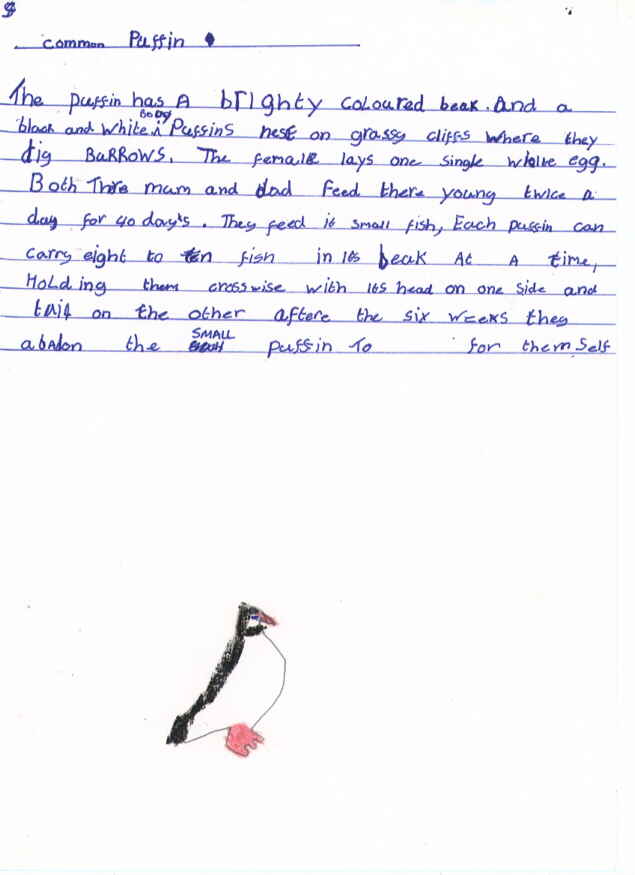 common Puffin
The puffin has A brighty coloured beak. And a
black and white Body. Puffins nest on grassy cliffs where they
dig BURROWS. The female lays one single white egg.
Both mum and dad feed there young twice a
day for 40 day's. They feed it small fish, Each puffin can
carry eight to ten fish in its beak At A time,
Holding them crosswise with its head on one side and
tail on the other aftere the six weeks they
abadon the SMALL puffin To for themself